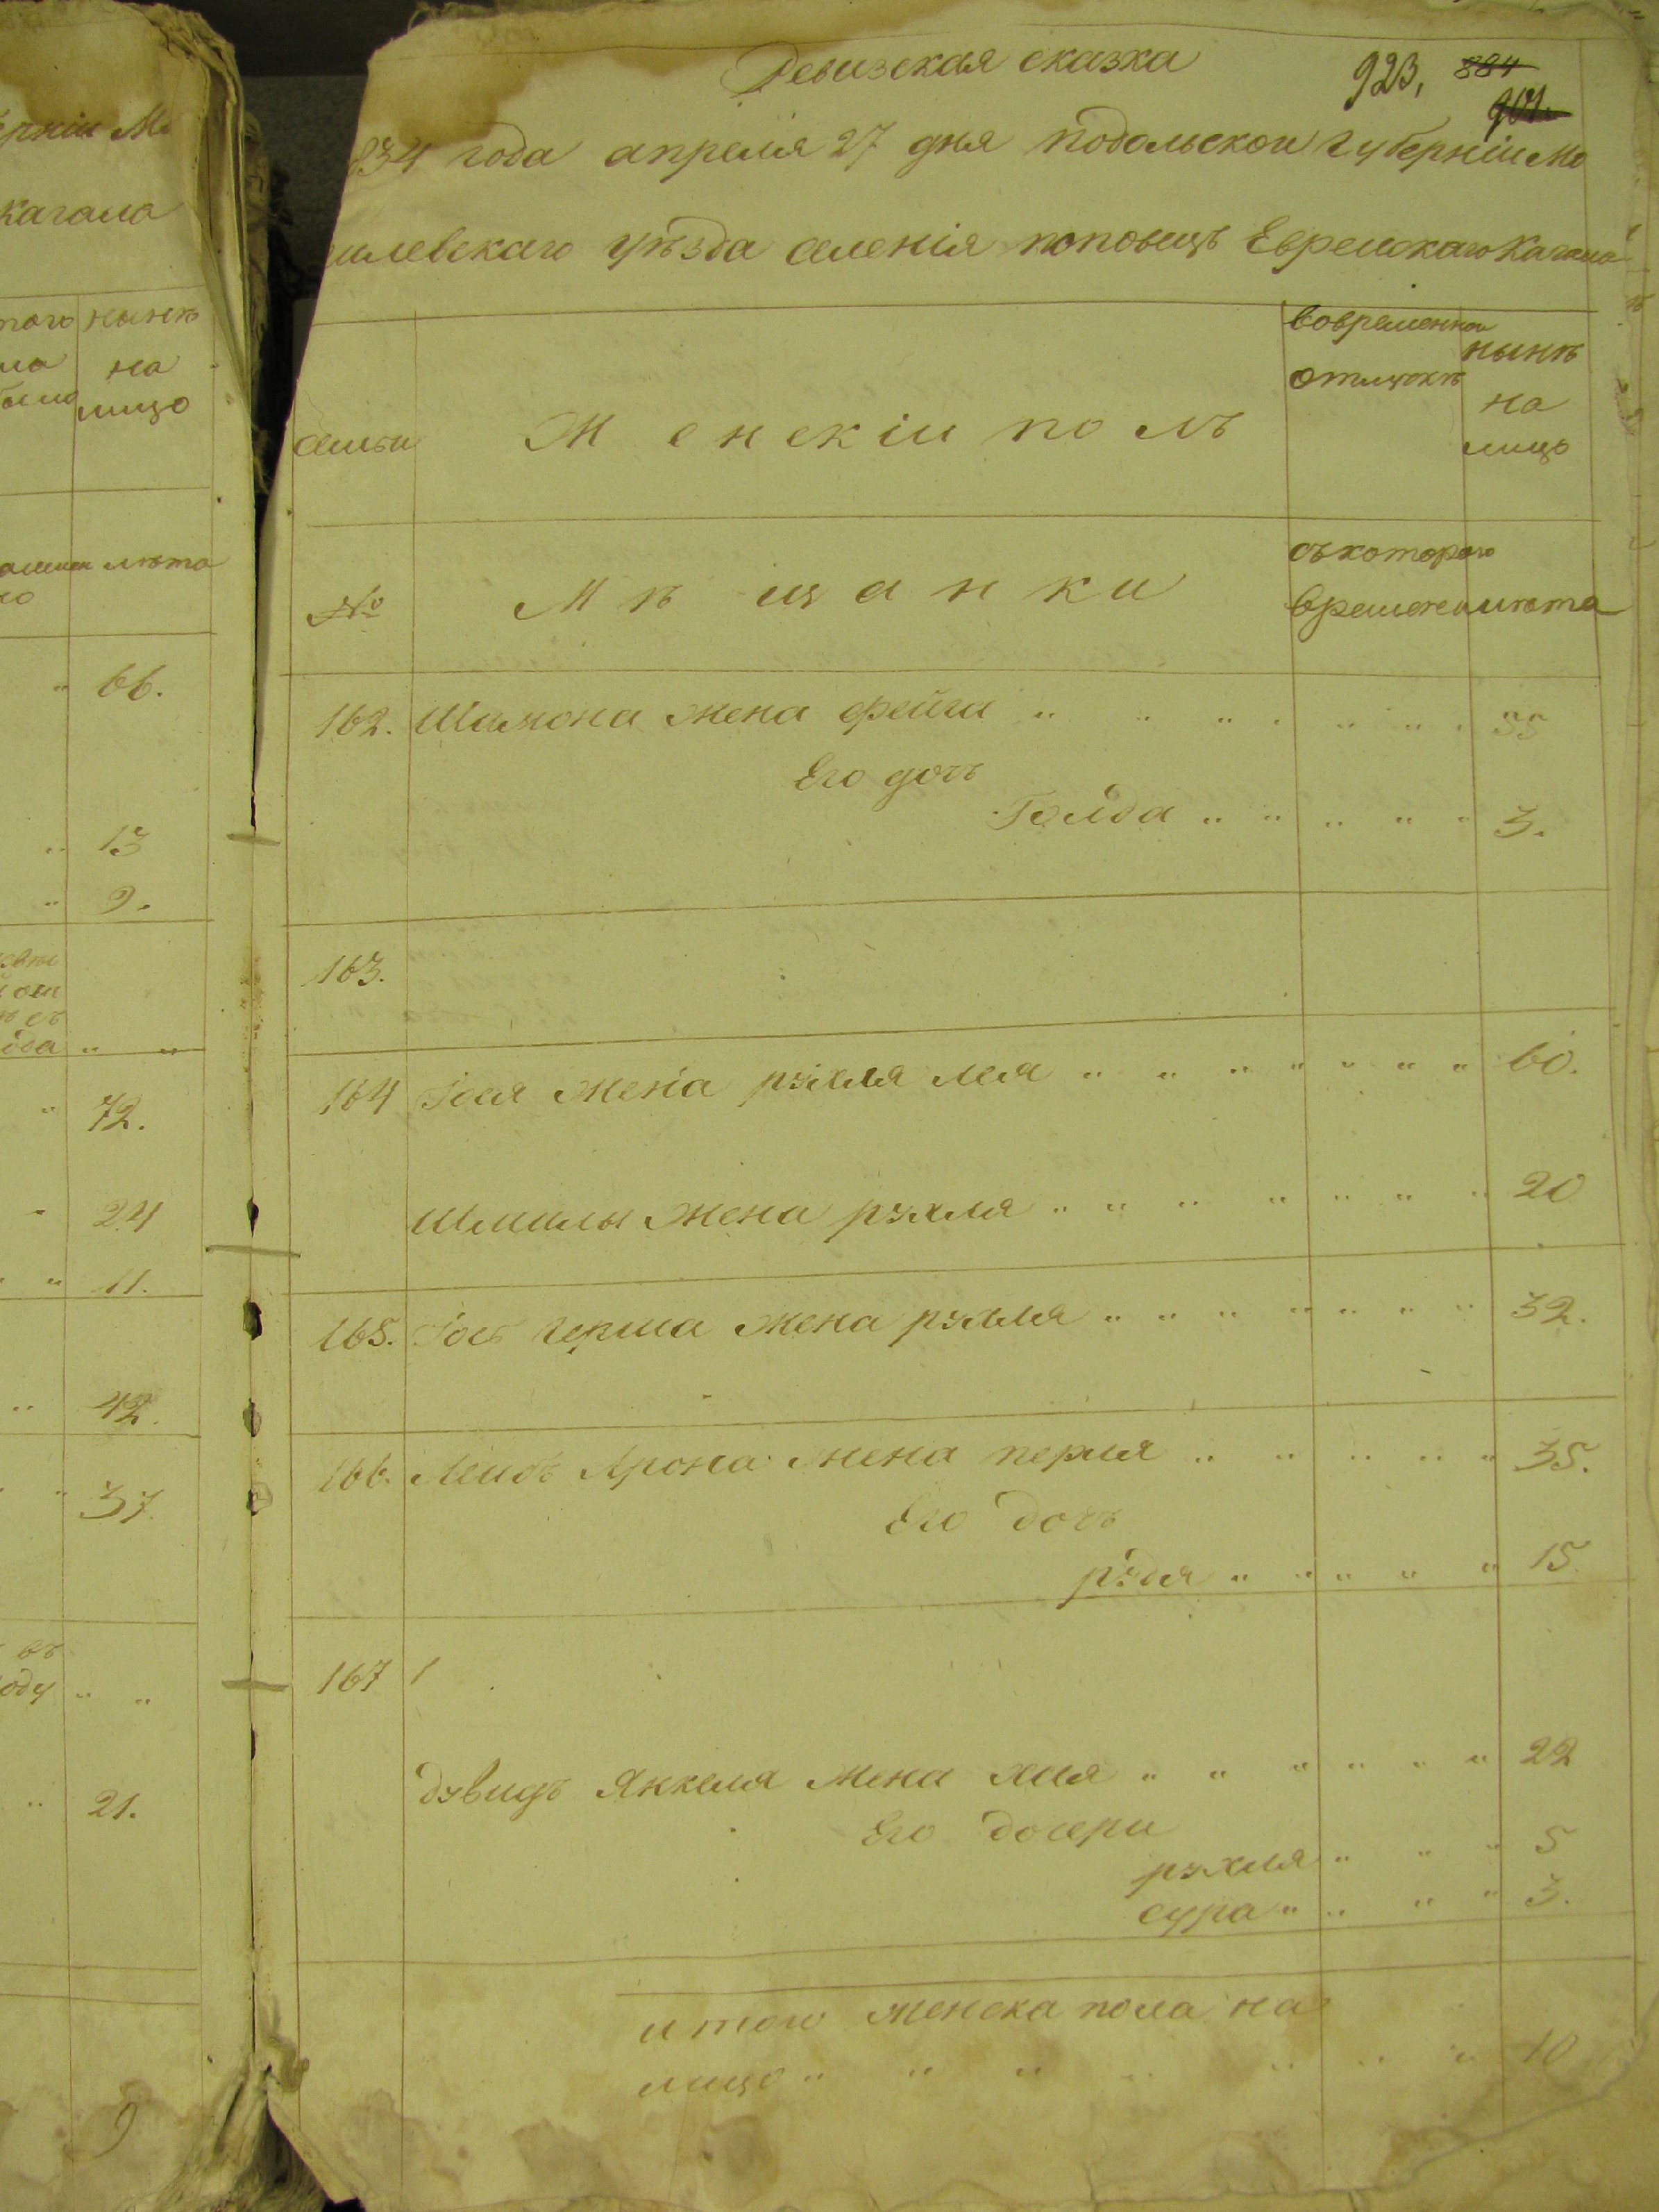 рніи Мо
Кагала
того нынѣ
на
было лицо
лѣта
66.
13
9.
да
72.
24
11.
42.
37.
въ
оду
21.
9
Ревизская сказка
923, 884
901.
834 года апреля 27 дня подольскои губерніи Мо
гилевскаго уѣзда селенія поповецъ Еврейскаго Кагала
семьи
Женскіи полъ
вовременнои
отлучкѣ
нынѣ
на
лицо
№
Мѣщанки
съкоторого
времени
лѣта
162. Шимона жена фейга " " " " " " " 55
Его дочъ
Голда " " " " " 3.
163.
164 Іося жена рухля лея " " " " " " " 60.
Шмилы жена рухля " " " " " " " 20
165. Іосъ герша жена рухля " " " " " " " 32.
166. Лейбъ Арона жена перля " " " " " 35.
Его дочъ
рудя " " " " " 15.
167
дувидъ Янкеля жена хая " " " " " " 22
Его дочери
рухля " " " 5
сура " " " " 3.
итого женска пола на
лицо " " " " " " " 10